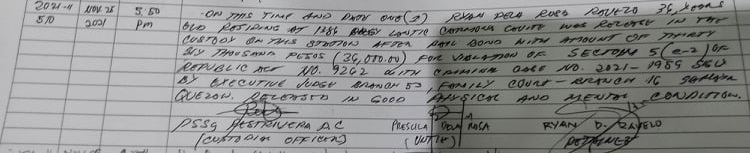 2021-11 NOV 25 5:50 -ON THIS TIME AND DATE ONE (1) RYAN DELA ROSA RAVELO 36, YEARS
510 2021 PM OLD RESIDING AT 1286 LANTIC CARMONA CAVITE WAS RELEASE IN THE
CUSTODY ON THIS STATION AFTER BAIL BOND WITH AMOUNT OF THIRTY
SIX THOUSAND PESOS (36,000.00) FOR VIOLATION OF SECTION 5 (e-2) OF
REPUBLIC ACT NO. 9262 WITH CRIMINAL CASE NO. 2021-1989
BY EXECUTIVE JUDGE BRANCH 53, FAMILY COURT - BRANCH 16
QUEZON. RELEASED IN GOOD PHYSICAL AND MENTAL CONDITION.
PSSG RESTRIVERA A.C PRESCILA DELA ROSA RYAN D. RAVELO
(CUSTODIAL OFFICER) (UNTIE) DETAINEE